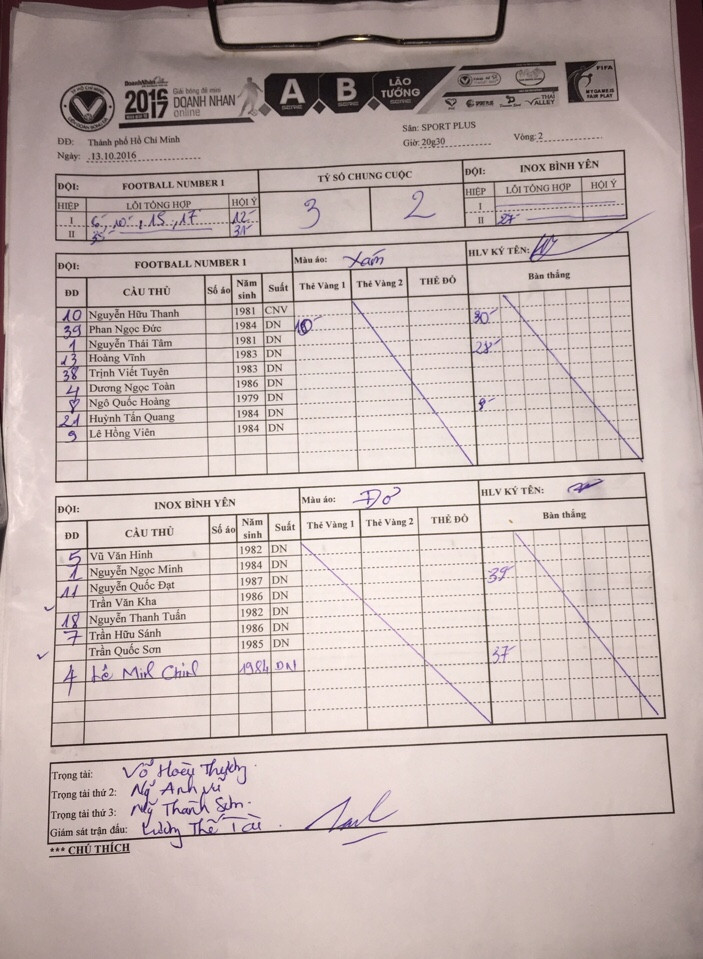 DoanhNhân
2016 2017 Giải bóng đá mini DOANH NHÂN online
A SERIE B SERIE LÃO TƯỚNG THÁI VALLEY FIFA MY GAME IS FAIR PLAY
ĐĐ: Thành phố Hồ Chí Minh Sân: SPORT PLUS
Ngày: 13.10.2016 Giờ: 20g30 Vòng: 2
ĐỘI: FOOTBALL NUMBER 1 TỶ SỐ CHUNG CUỘC ĐỘI: INOX BÌNH YÊN
HIỆP LỖI TỔNG HỢP HỘI Ý 3 2 HIỆP LỖI TỔNG HỢP HỘI Ý
I 6, 10, 15, 17 12 I
II 35 31 II 27
ĐỘI: FOOTBALL NUMBER 1 Màu áo: Xám HLV KÝ TÊN:
ĐD CẦU THỦ Số áo Năm sinh Suất Thẻ Vàng 1 Thẻ Vàng 2 THẺ ĐỎ Bàn thắng
10 Nguyễn Hữu Thanh 1981 CNV 30
39 Phan Ngọc Đức 1984 DN 10
1 Nguyễn Thái Tâm 1981 DN 28
13 Hoàng Vĩnh 1983 DN
38 Trịnh Viết Tuyên 1983 DN
4 Dương Ngọc Toàn 1986 DN
8 Ngô Quốc Hoàng 1979 DN 9
21 Huỳnh Tấn Quang 1984 DN
9 Lê Hồng Viên 1984 DN
ĐỘI: INOX BÌNH YÊN Màu áo: Đỏ HLV KÝ TÊN:
ĐD CẦU THỦ Số áo Năm sinh Suất Thẻ Vàng 1 Thẻ Vàng 2 THẺ ĐỎ Bàn thắng
5 Vũ Văn Hinh 1982 DN
1 Nguyễn Ngọc Minh 1984 DN
11 Nguyễn Quốc Đạt 1987 DN 39
Trần Văn Kha 1986 DN
18 Nguyễn Thanh Tuấn 1982 DN
7 Trần Hữu Sánh 1986 DN
Trần Quốc Sơn 1985 DN 37
4 Lê Minh Chinh 1984 DN
Trọng tài: Võ Hoàng
Trọng tài thứ 2: Ng Anh Vũ
Trọng tài thứ 3: Ng Thanh Sơn
Giám sát trận đấu: Lương Thế Tài
*** CHÚ THÍCH